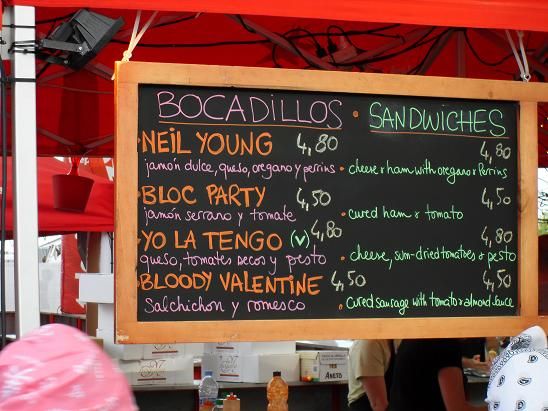 BOCADILLOS • SANDWICHES
NEIL YOUNG 4,80 4,80
jamón dulce, queso, oregano y perrins • cheese & ham with oregano & Perrins
BLOC PARTY 4,50 4,50
jamón serrano y tomate • cured ham & tomato
YO LA TENGO (v) 4,80 4,80
queso, tomates secos y pesto • cheese, sum-dried tomatoes & pesto
BLOODY VALENTINE 4,50 4,50
Salchichon y romesco • Cured sausage with tomato & almond sauce
ANETO